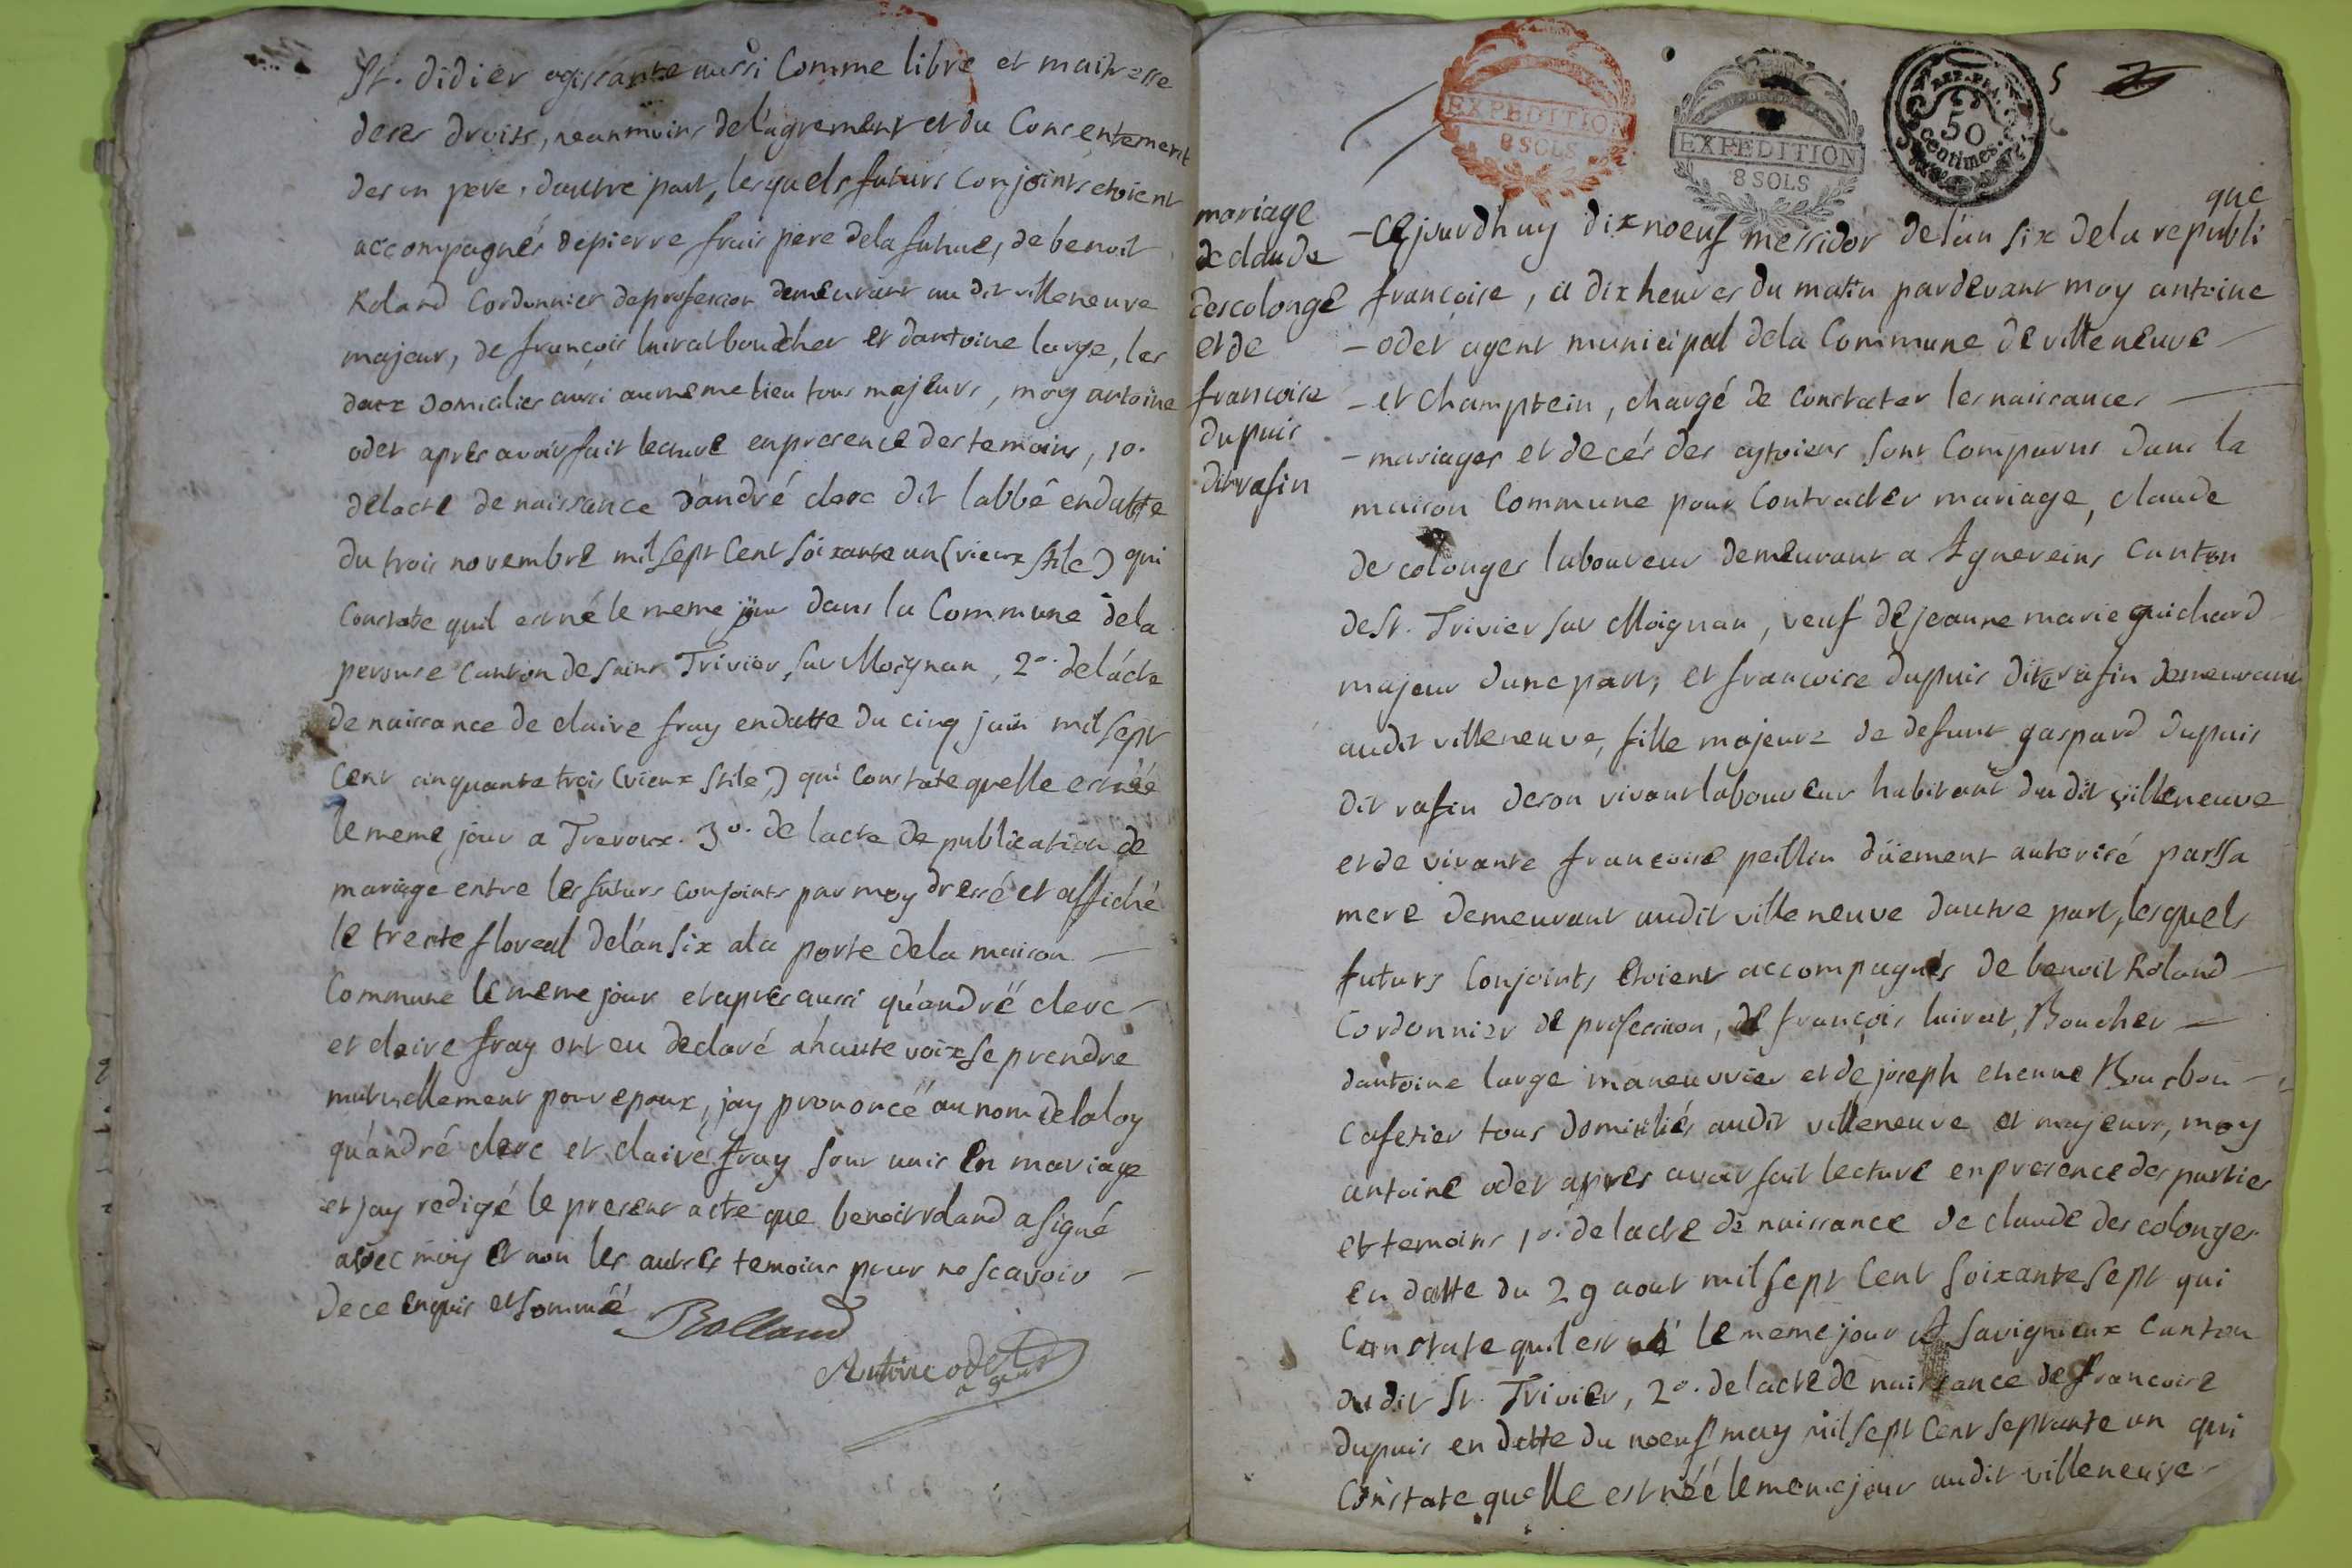 St. didier agissante aussi Comme libre et maitresse
deses droits, neanmoins del'agrement et du Consentement
deson pere. dautre part, lesquels futurs conjoints etoient
accompagnés depierre frais pere dela future, de benoit
Roland Cordonnier deprofession demeurant au dit villeneuve
majeur, de françois luirat boucher et dantoine large, les
deux domicilies aussi aumeme lieu tous majeurs, moy antoine
odet apres avoir fait lecture enpresence destemoins, 1o.
delacte de naissance d'andré clerc dit labbé endatte
du trois novembre mil sept Cent soixante un (vieux stile) qui
Constate quil est né le meme jour dans la Commune dela
perouse Canton desaint Trivier, sur Moignan, 2o. delácte
de naissance de claire fray endatte du cinq juin mil sept
Cent cinquante trois (vieux stile,) qui Constate quelle est née
le meme jour a Trevoux. 3o. de lacte de publication de
mariage entre les futurs conjoints par moy dressé et affiché
le trente floreal delan six ala porte dela maison
Commune le meme jour et apres aussi qu'andré clerc
et claire fray ont eu declaré ahaute voix se prendre
mutuellement pour epoux, jay prononcé au nom delaloy
qu'andré clerc et claire fray sont unis En mariage
et jay redigé le present acte que benoit roland a signé
avec moy et non les autres temoins pour ne scavoir
dece enquis et sommé
Rolland
Antoine odet
agent
5
EXPEDITION
8 SOLS
EXPEDITION
8 SOLS
REP. FRA.
50
Centimes.
mariage
de claude
descolonge
et de
francoise
dupuis
dit rafin
que
Cejourdhuy dix noeuf messidor delan six dela republi
francoise, a dix heures du matin pardevant moy antoine
odet agent municipal dela Commune de villeneuve
et Champtein, chargé de Constater les naissances
mariages et decés des cytoiens sont Comparus dans la
maison Commune pour Contracter mariage, claude
descolonges laboureur demeurant a Agnereins Canton
de St. Trivier sur Moignan, veuf de jeanne marie guichard
majeur dune part, et francoise dupuis dite rafin demeurant
audit villeneuve, fille majeure de defunt gaspard dupuis
dit rafin deson vivant laboureur habitant du dit villeneuve
et de vivante francoise peillin düement autorisé par sa
mere demeurant audit villeneuve dautre part, lesquels
futurs Conjoints etoient accompagnés de benoit Roland
Cordonnier de profession, de françois luirat, Boucher
dantoine large maneuvrier et de joseph etienne Bourbon
Cafetier tous domiciliés audit villeneuve et majeurs, moy
antoine odet apres avoir fait lecture enpresence des parties
et temoins 1o. delacte de naissance de claude descolonges
en datte du 29 aout mil sept Cent soixante sept qui
Constate quil est né le meme jour A Savignieux Canton
du dit St. Trivier, 2o. delacte de naissance de francoise
dupuis en datte du noeuf may mil sept Cent septante un qui
Constate quelle est née le meme jour audit villeneuve